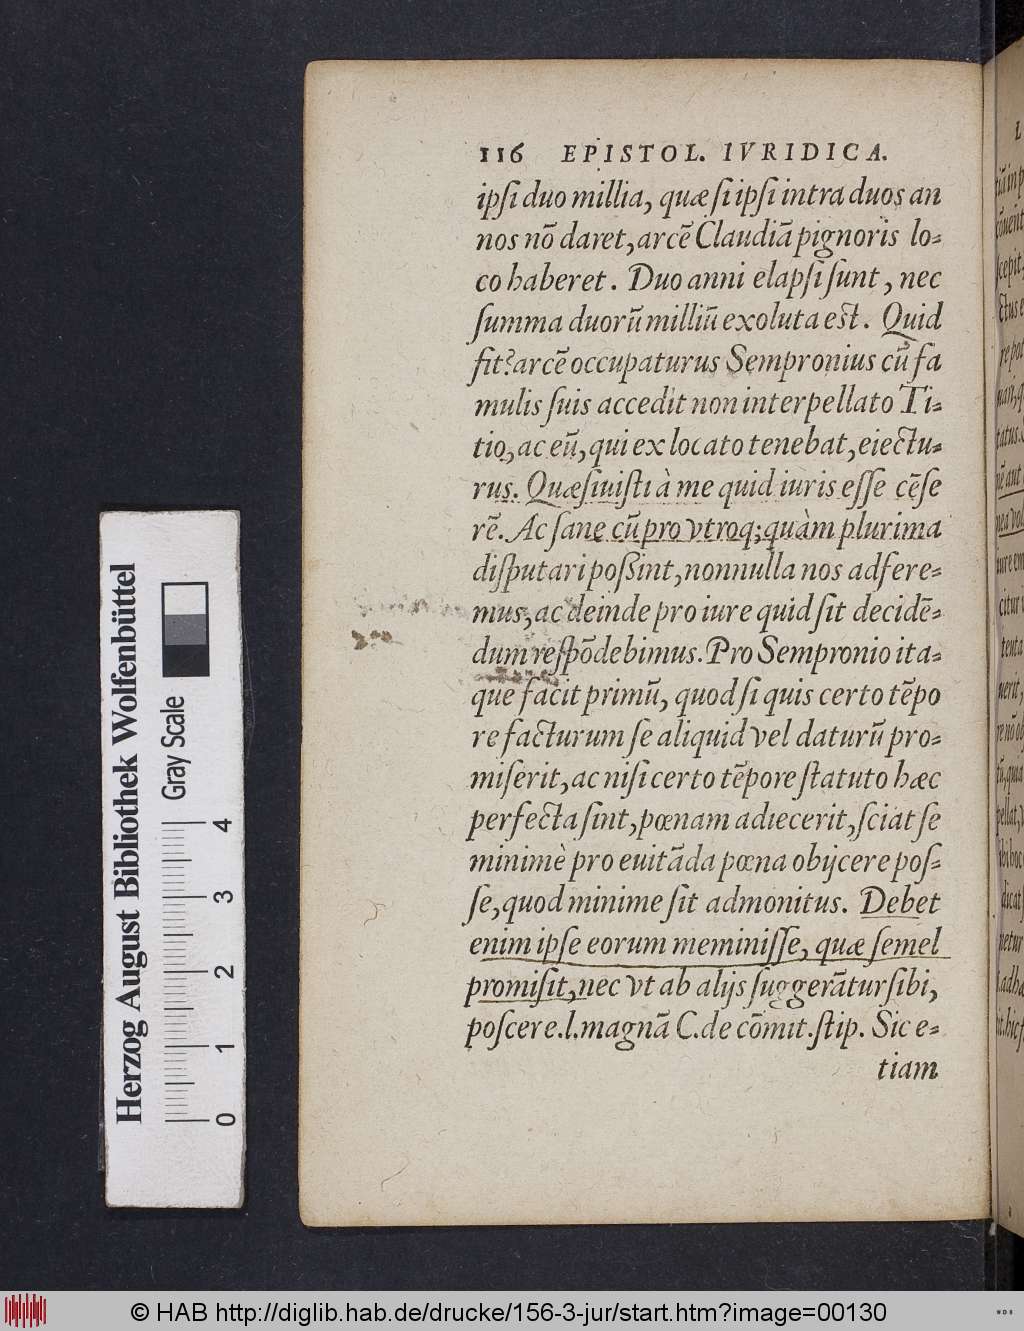 116 EPISTOL. IVRIDICA.
ipſi duo millia, quæ ſi ipſi intra duos an
nos nō daret, arcē Claudiā pignoris lo-
co haberet. Duo anni elapſi ſunt, nec
ſumma duorū milliū exoluta eſt. Quid
fit? arcē occupaturus Sempronius cū fa
mulis ſuis accedit non interpellato Ti-
tio, ac eū, qui ex locato tenebat, eiectu-
rus. Quæſiuiſti à me quid iuris eſſe cēſe
rē. Ac ſane cū pro vtroq; quàm plurima
diſputari poſſint, nonnulla nos adfere-
mus, ac deinde pro iure quid ſit decidē-
dum reſpōdebimus. Pro Sempronio ita-
que facit primū, quod ſi quis certo tēpo
re facturum ſe aliquid vel daturū pro-
miſerit, ac niſi certo tēpore ſtatuto hæc
perfecta ſint, pœnam adiecerit, ſciat ſe
minimè pro euitāda pœna obijcere poſ-
ſe, quod minime ſit admonitus. Debet
enim ipſe eorum meminiſſe, quæ ſemel
promiſit, nec vt ab alijs ſuggerātur ſibi,
poſcere. l. magnā C. de cōmit. ſtip. Sic e-
tiam
Herzog August Bibliothek Wolfenbüttel
Gray Scale
0 1 2 3 4
© HAB http://diglib.hab.de/drucke/156-3-jur/start.htm?image=00130